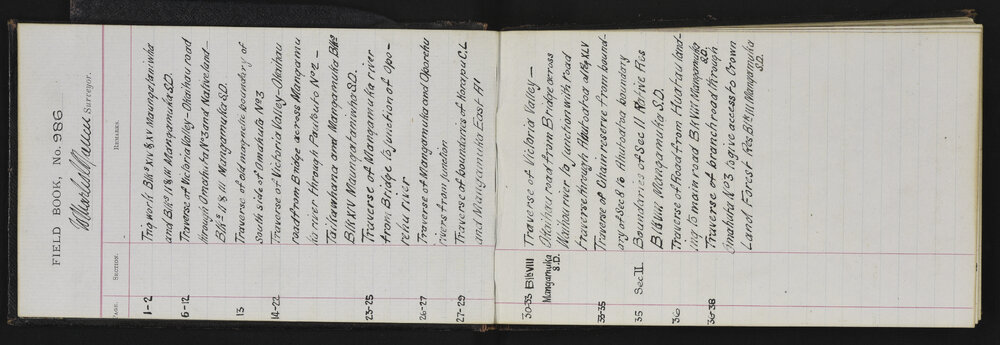 FIELD BOOK, No. 986
Surveyor.
PAGE. SECTION. REMARKS.
1-2 Trig work Blks XIV & XV Maungataniwha
and Blks II & III Mangamuka S.D.
6-12 Traverse of Victoria Valley-Okaihau road
through Omahuta No 3 and Native land-
Blks II & III Mangamuka S.D.
13 Traverse of old magnetic boundary of
South side of Omahuta No 3
14-22 Traverse of Victoria Valley-Okaihau
road from Bridge across Mangamu-
ka river through Parts No 2 -
and Mangamuka Blks
Blk XIV Maungataniwha S.D.
23-25 Traverse of Mangamuka river
from Bridge to junction of Opo-
rehu river
26-27 Traverse of Mangamuka and Oporehu
rivers from junction
27-29 Traverse of boundaries of C.L
and Mangamuka East A1
30-33 Blk VIII Traverse of Victoria Valley-
Mangamuka Okaihau road from Bridge across
S.D. river to junction with road
traverse through
33-35 Traverse of Chain reserve from bound-
ary of Sec 8 to boundary
35 Sec 11. Boundaries of Sec 11
Blk VIII Mangamuka S.D.
36 Traverse of Road from land-
ing to main road Blk VIII Mangamuka
S.D.
36-38 Traverse of branch road through
Omahuta No 3 to give access to Crown
Land Forest Res Blk III Mangamuka
S.D.